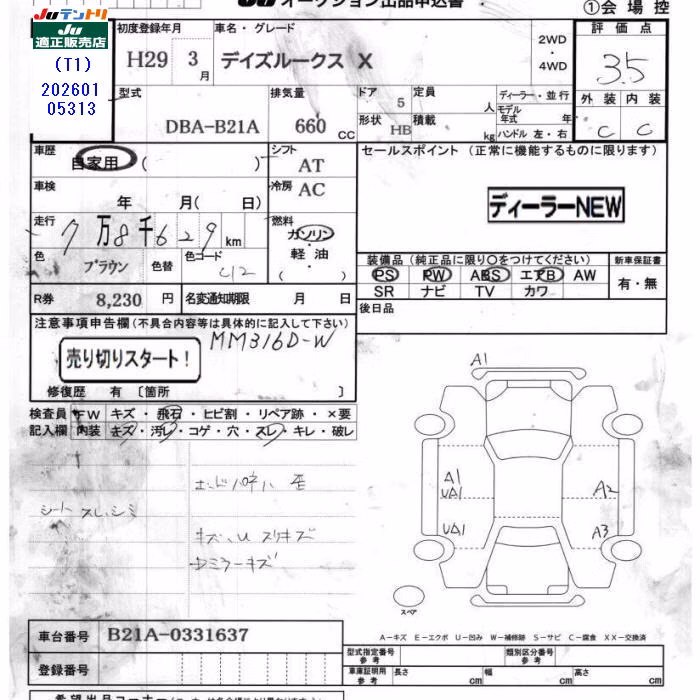 Juテントリ
Ju
適正販売店
(T1)
202601
05313
オークション出品申込書
①会場控
初度登録年月
H29 3月
車名・グレード
デイズルークス X
2WD
・
4WD
評価点
3.5
外装 内装
C C
型式
DBA-B21A
排気量
660 CC
ドア 5
形状 HB
定員 人
積載 kg
ディーラー・並行
モデル
年式 年
ハンドル 左・右
車歴
自家用 ( )
シフト
AT
車検
年 月( 日)
冷房
AC
走行
7万8千629km
燃料
ガソリン
・
軽油
・
( )
色
ブラウン
色替
色コード
C12
R券 8,230 円
名変通知期限 月 日
セールスポイント (正常に機能するものに限ります)
ディーラーNEW
装備品 (純正品に限り○をつけてください)
PS PW ABS エアB AW
SR ナビ TV カワ
新車保証書
有・無
後日品
注意事項申告欄(不具合内容等は具体的に記入して下さい)
MM316D-W
売り切りスタート!
修復歴 有 〔箇所 〕
検査員 FW キズ・飛石・ヒビ割・リペア跡・×要
記入欄 内装 キズ・汚レ・コゲ・穴・スレ・キレ・破レ
シート スレ,シミ
キズ、U スリキズ
ミラーキズ
A1
A1
UA1
UA1
A2
A3
スペア
A-キズ E-エクボ U-凹み W-補修跡 S-サビ C-腐食 XX-交換済
車台番号 B21A-0331637
登録番号
型式指定番号
参考
類別区分番号
参考
車庫証明用
参考
長さ cm 幅 cm 高さ cm